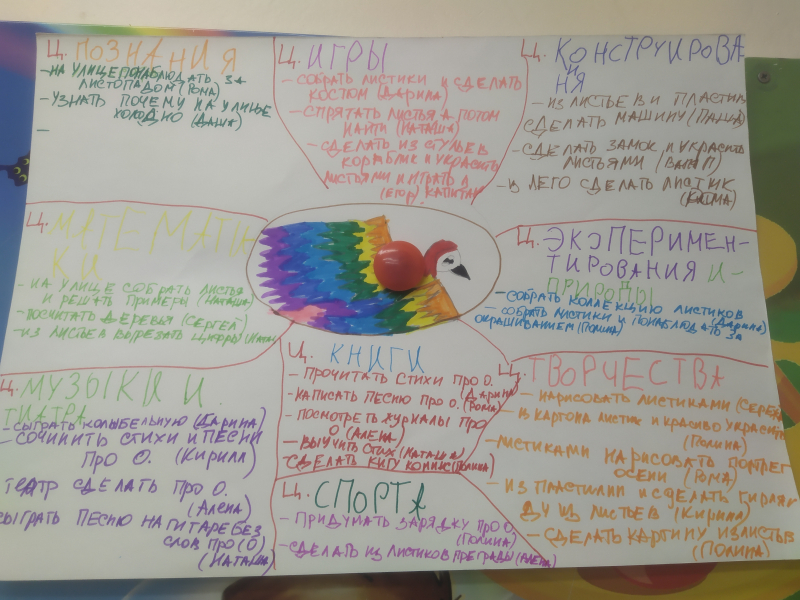 Ц. ПОЗНАНИЯ
- НА УЛИЦЕ ПОНАБЛЮДАТЬ ЗА
ЛИСТОПАДОМ (РОМА)
- УЗНАТЬ ПОЧЕМУ НА УЛИЦЕ
ХОЛОДНО (ДАША)
-
Ц. ИГРЫ
- СОБРАТЬ ЛИСТИКИ И СДЕЛАТЬ
КОСТЮМ (ДАРИНА)
- СПРЯТАТЬ ЛИСТЬЯ А ПОТОМ
НАЙТИ (НАТАША)
- СДЕЛАТЬ ИЗ СТУЛЬЕВ
КОРАБЛИК И УКРАСИТЬ
ЛИСТЬЯМИ И ИГРАТЬ Я
(ЕГОР) КАПИТАН
Ц. КОНСТРУИРОВА
НИЯ
- ИЗ ЛИСТЬЕВ И ПЛАСТИЛ
СДЕЛАТЬ МАШИНУ (ПАША)
- СДЕЛАТЬ ЗАМОК И УКРАСИТЬ
ЛИСТЬЯМИ
- ИЗ ЛЕГО СДЕЛАТЬ ЛИСТИК
Ц. МАТЕМАТИ
КИ
- НА УЛИЦЕ СОБРАТЬ ЛИСТЬЯ
И РЕШАТЬ ПРИМЕРЫ (НАТАША)
- ПОСЧИТАТЬ ДЕРЕВЬЯ (СЕРГЕЙ)
- ИЗ ЛИСТЬЕВ ВЫРЕЗАТЬ ЦИФРЫ
Ц. ЭКСПЕРИМЕН-
ТИРОВАНИЯ И
ПРИРОДЫ
- СОБРАТЬ КОЛЛЕКЦИЮ ЛИСТИКОВ
(ДАРИНА)
- СОБРАТЬ ЛИСТИКИ И ПОНАБЛЮДАТЬ ЗА
ОКРАШИВАНИЕМ (ПОЛИНА)
Ц. МУЗЫКИ И
ТИАТРА
- СЫГРАТЬ КОЛЫБЕЛЬНУЮ (ДАРИНА)
- СОЧИНИТЬ СТИХИ И ПЕСНИ
ПРО О. (КИРИЛЛ)
ТЕАТР СДЕЛАТЬ ПРО О.
(АЛЕНА)
СЫГРАТЬ ПЕСНЮ НА ГИТАРЕ БЕЗ
СЛОВ ПРО (О)
(НАТАША)
Ц. КНИГИ
- ПРОЧИТАТЬ СТИХИ ПРО О.
(ДАРИНА)
- НАПИСАТЬ ПЕСНЮ ПРО О. (РОМА)
- ПОСМОТРЕТЬ ЖУРНАЛЫ ПРО
О (АЛЕНА)
- ВЫУЧИТЬ СТИХ (НАТАША)
СДЕЛАТЬ КНИГУ КОМИКС (ПОЛИНА)
Ц. СПОРТА
- ПРИДУМАТЬ ЗАРЯДКУ ПРО О
(ПОЛИНА)
- СДЕЛАТЬ ИЗ ЛИСТИКОВ ПРЕГРАДЫ (АЛЕНА)
Ц. ТВОРЧЕСТВА
- НАРИСОВАТЬ ЛИСТИКАМИ
- ИЗ КАРТОНА ЛИСТИК И КРАСИВО УКРАСИТЬ
(ПОЛИНА)
- ЛИСТИКАМИ НАРИСОВАТЬ ПОРТРЕТ
ОСЕНИ (РОМА)
- ИЗ ПЛАСТИЛИН И СДЕЛАТЬ ГИРЛЯН
ДУ ИЗ ЛИСТЬЕВ (КИРИЛЛ)
- СДЕЛАТЬ КАРТИНУ ИЗ ЛИСТЬЕВ
(ПОЛИНА)